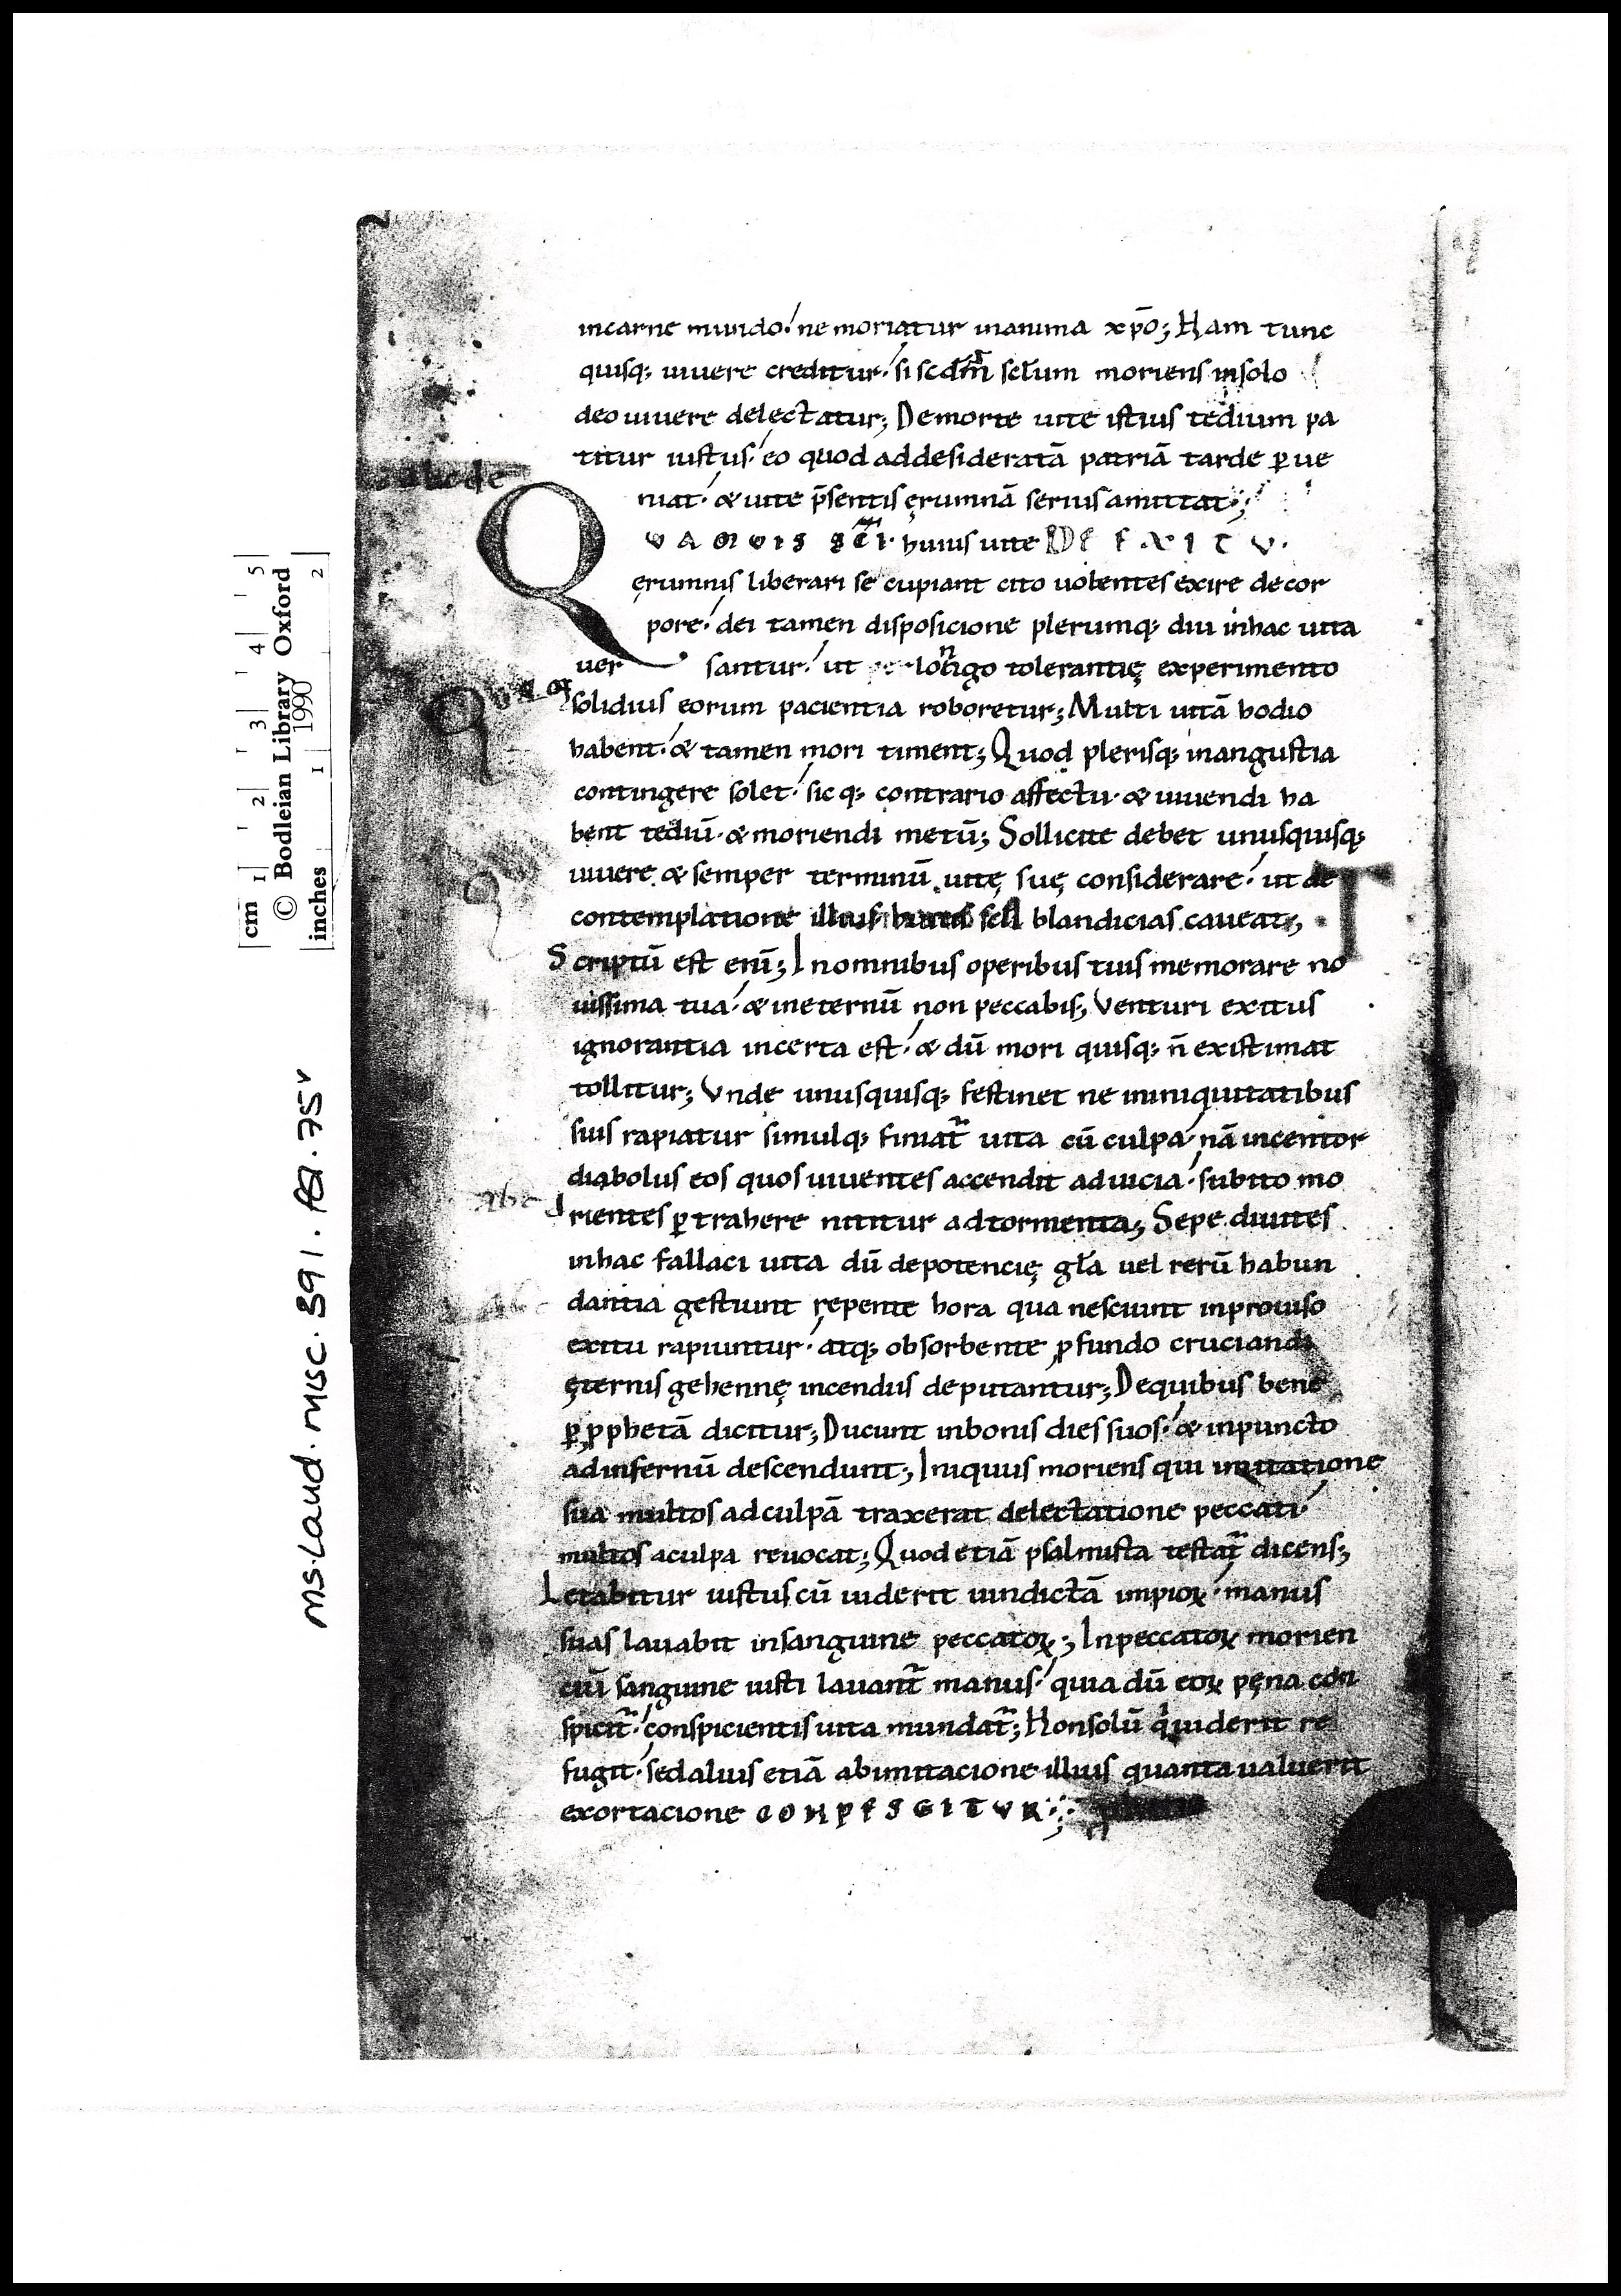 incarne mundo ne moriatur inanima xp̄o; Nam tunc
quisq; uiuere creditur si scdm̄ sclūm moriens insolo
deo uiuere delectatur; Demorte uite istius tedium pa
titur iustus eo quod addesideratā patriā tarde p̱ue
abcde
niat · & uite p̄sentis ęrumnā serius amittat;
QVAMVIS SC̄I · huius uite DE EXITV ·
ęrumnis liberari se cupiant cito uolentes exire decor
pore · dei tamen disposicione plerumq; diu inhac uita
uer santur · ut longo tolerantię experimento
solidius eorum pacientia roboretur; Multi uitā hodio
habent · & tamen mori timent; Quod plerisq; inangustia
contingere solet · sic q; contrario affectu · & uiuendi ha
bent tediū · & moriendi metū; Sollicite debet unusquisq;
uiuere & semper terminū uitę suę considerare · ut de
contemplatione illius blandicias caueat;
Scriptū est enī; Inomnibus operibus tuis memorare no
uissima tua · & ineternū non peccabis; Venturi exitus
ignorantia incerta est · & dū mori quisq; n̄ existimat
tollitur; Vnde unusquisq; festinet ne ininiquitatibus
suis rapiatur simulq; finiat᷑ uita cū culpa · nā incentor
diabolus eos quos uiuentes accendit aduicia · subito mo
abcd
rientes p̱trahere nititur adtormenta; Sepe diuites
inhac fallaci uita dū depotencię gl̄a uel rerū habun
dantia gestiunt repente hora qua nesciunt inprouiso
exitu rapiuntur · atq; obsorbente ꝓfundo cruciandi
ęternis gehennę incendiis deputantur; Dequibus bene
p̱ ꝓphetā dicitur; Ducunt inbonis dies suos · & inpuncto
adinfernū descendunt; Iniquus moriens qui imitatione
sua multos adculpā traxerat delectatione peccati
multos aculpa reuocat; Quodetiā psalmista testat᷑ dicens;
Letabitur iustus cū uiderit uindictā impioꝝ · manus
suas lauabit insanguine peccatoꝝ; Inpeccatoꝝ morien
ciū sanguine iusti lauant᷑ manus · quia dū eoꝝ pęna con
spicit᷑ · conspicientis uita mundat᷑; Nonsolū q uiderit re
fugit · sedalius etiā abimitacione illius quanta ualuerit
exortacione CONPESCITVR
cm 1 2 3 4 5
© Bodleian Library Oxford
inches 1 1990 2
MS. Laud. Misc. 391. fol. 75v